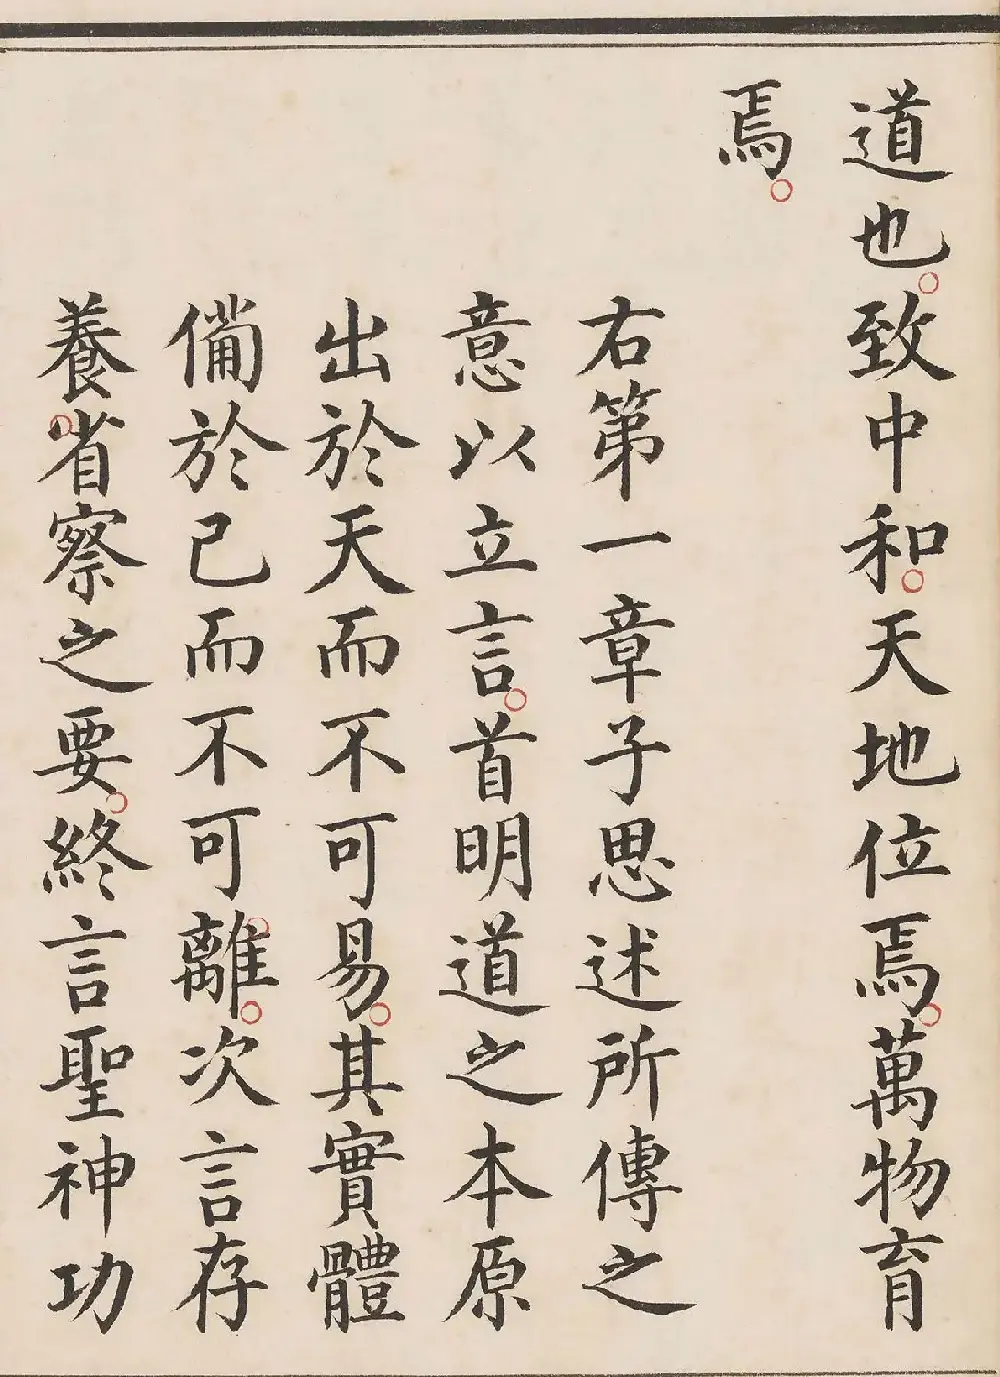 道也。致中和。天地位焉。萬物育
焉。
右第一章子思述所傳之
意以立言。首明道之本原
出於天而不可易。其實體
備於已而不可離。次言存
養。省察之要。終言聖神功